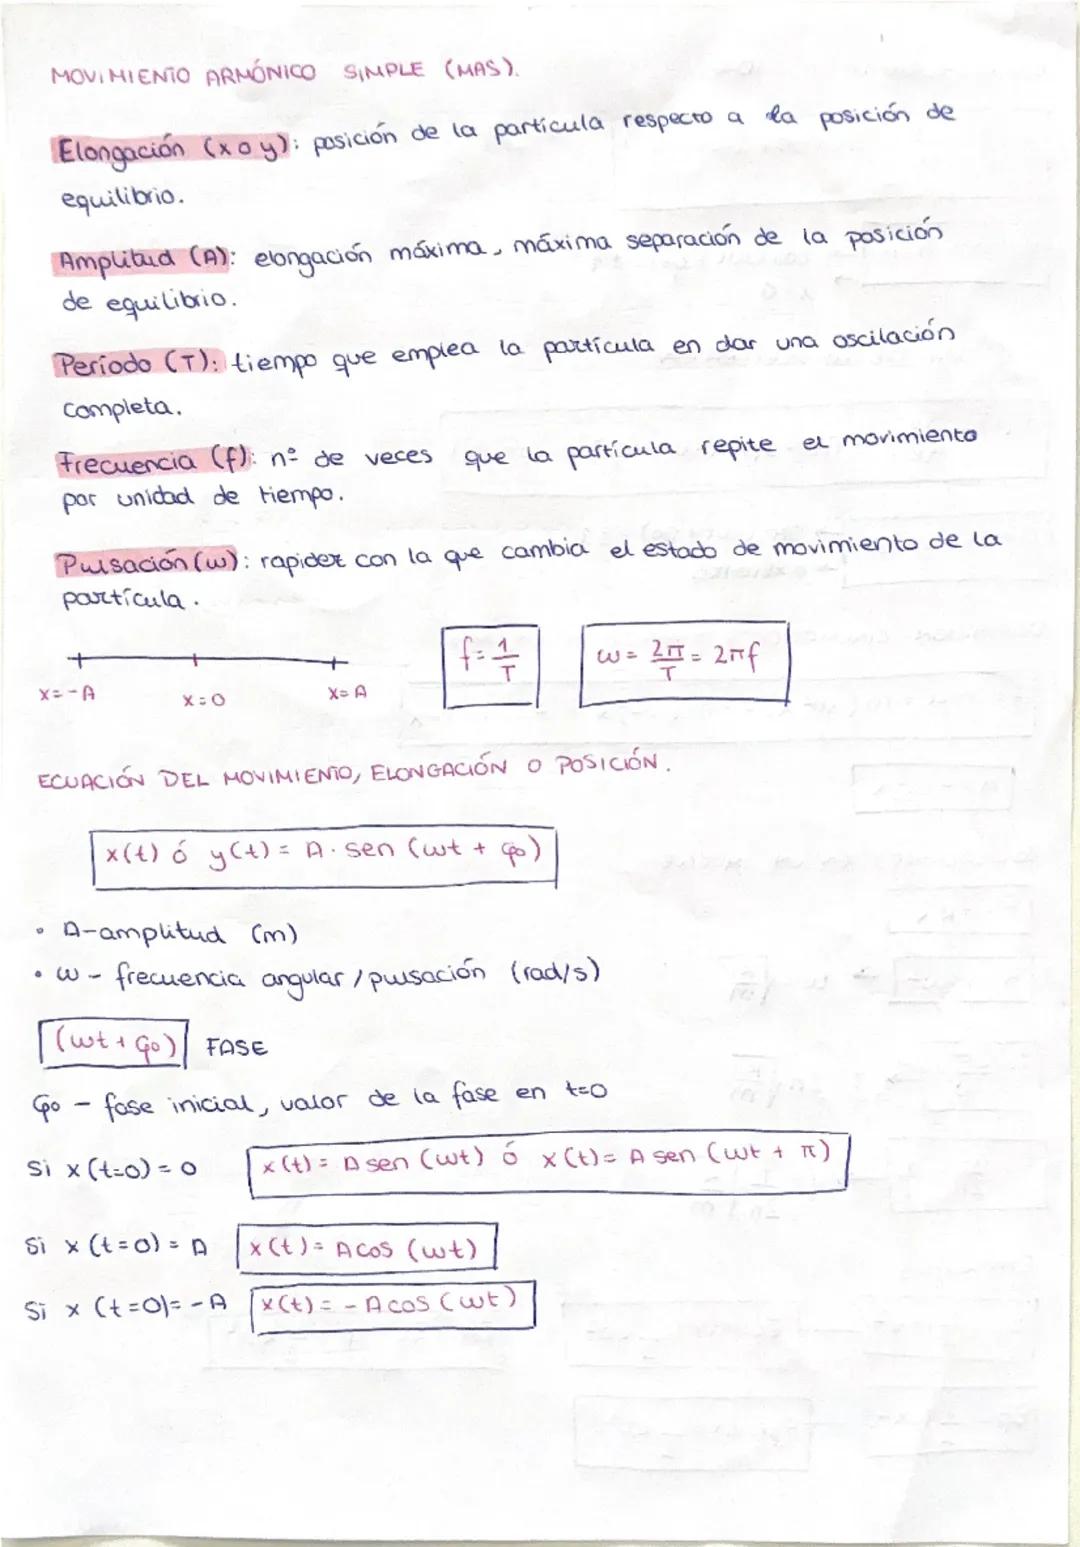 MOVIMIENTO ARMÓNICO SIMPLE (MAS).
Elongación (x o y): posición de la partícula respecto a la posición de
equilibrio.
Amplitud (A): elongación máxima, máxima separación de la posición
de equilibrio.
Período (T): tiempo que emplea la partícula en dar una oscilación
completa.
Frecuencia (f): nº de veces que la partícula repite el movimiento
por unidad de tiempo.
Pulsación (ω): rapidez con la que cambia el estado de movimiento de la
partícula.
f = 1/T ω = 2π/T = 2πf
x=-A x=0 x=A
ECUACIÓN DEL MOVIMIENTO, ELONGACIÓN O POSICIÓN.
x(t) ó y(t) = A · sen (ωt + φ₀)
• A-amplitud (m)
• ω - frecuencia angular / pulsación (rad/s)
(ωt + φ₀) FASE
φ₀ - fase inicial, valor de la fase en t=0
Si x(t=0) = 0 x(t) = A sen (ωt) ó x(t) = A sen (ωt + π)
Si x (t=0) = A x(t) = A cos (ωt)
Si x (t=0) = -A x(t) = - A cos (ωt)